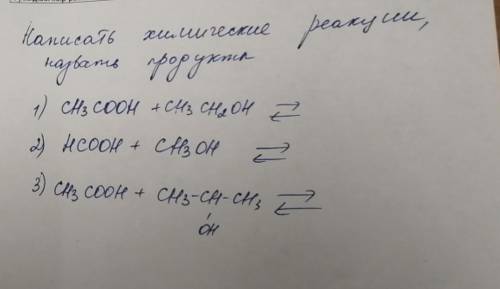 Написать химические реакции,
назвать продукты
1) CH3COOH + CH3CH2OH ⇄
2) HCOOH + CH3OH ⇄
3) CH3COOH + CH3-CH-CH3 ⇄
OH